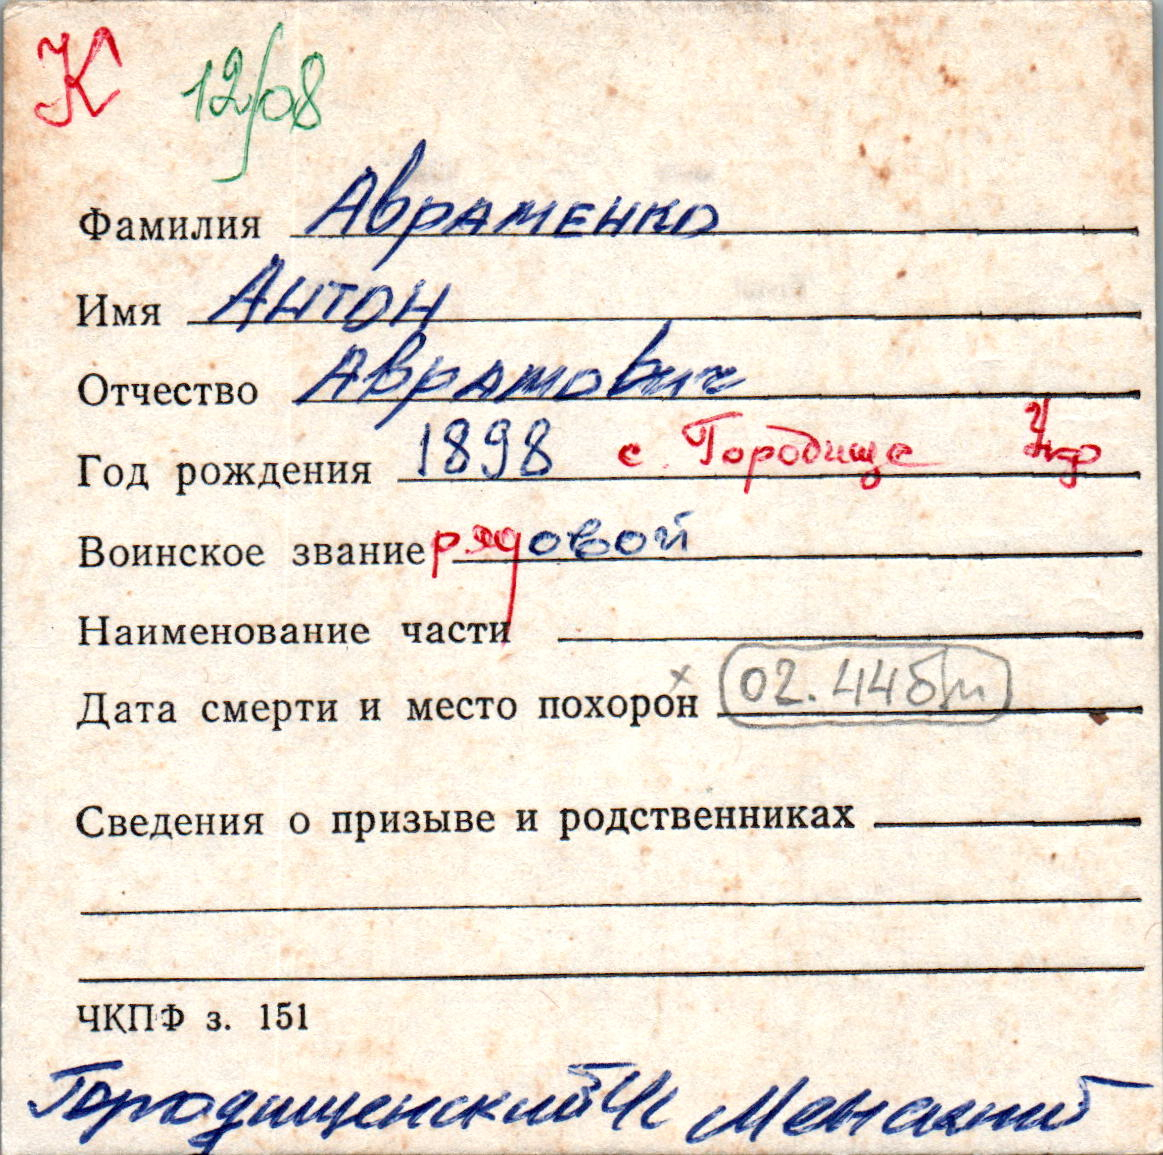 К 12/08
Фамилия Авраменко
Имя Антон
Отчество Аврамович
Год рождения 1898 с. Городище Укр
Воинское звание рядовой
Наименование части
Дата смерти и место похорон x 02.44 б/п
Сведения о призыве и родственниках
ЧКПФ з. 151
Городищенский Менский